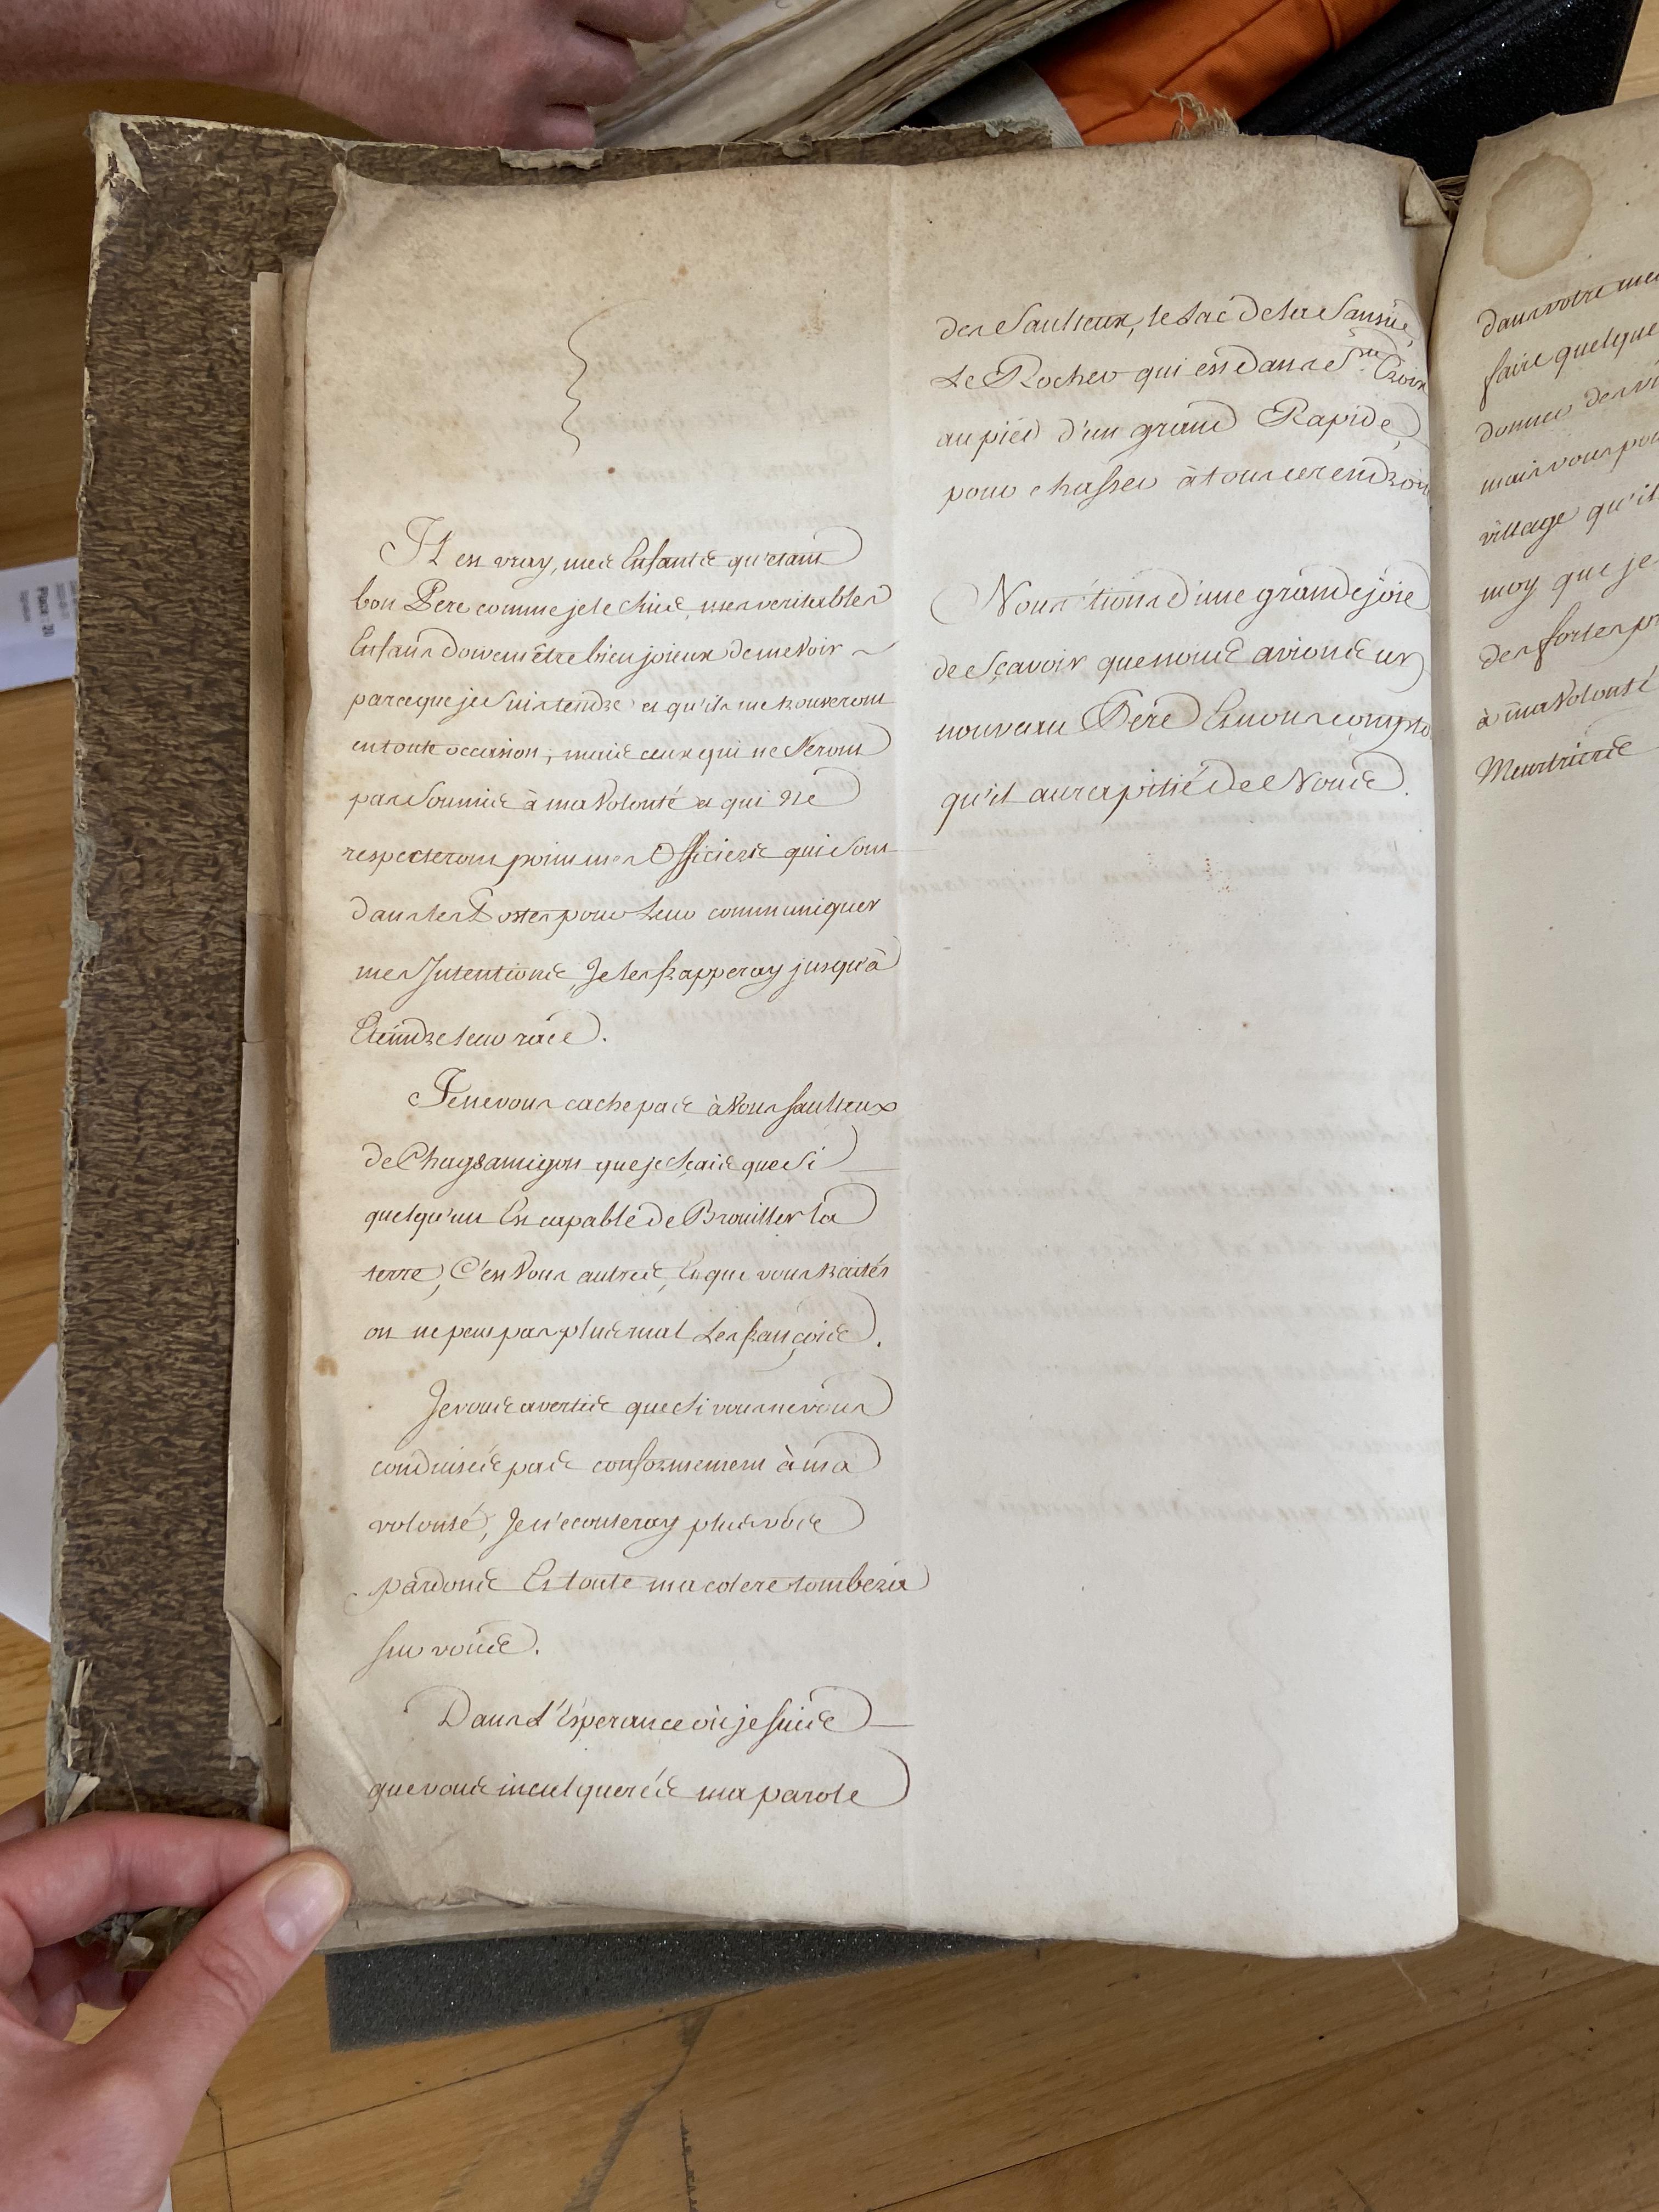 Il est vray, mes Enfants qu'etant
bon Pere comme je le Suis, mes veritables
Enfans doivent être bien joieux de me Voir
parceque je Suis tendre et qu'ils me trouveront
en toute occasion; mais ceux qui ne Seront
pas Soumis à ma Volonté et qui Ne
respecteront point mes Officiers qui Sont
dans les Postes pour Leur communiquer
mes Intentions, Je les frapperay jusqu'à
Eteindre leur race.
Je ne vous cache pas à Vous saulteux
de Chag8amigon que je Sçais que Si
quelqu'un Est capable de Brouiller la
terre, C'est Vous autres, Et que vous traités
on ne peut pas plus mal Les françois.
Je vous avertis que Si vous ne vous
conduisés pas conformement à ma
volonté, Je n'ecouteray plus vos
pardons Et toute ma colere tombera
sur vous.
Dans l'Esperance où je suis
que vous inculquerés ma parole
des Saulteux, le Lac de la Sansüe,
Le Rocher qui est dans Ste. Croix
au pied d'un grand Rapide,
pour chasser à tous ces endroits
Nous étions d'une grande joie
de Sçavoir que nous avions un
nouveau Pere Et nous compto
qu'il aura pitié de Nous.
dans votre
faire quelque
donner des
mais vous
village qu'il
moy que je
des fortes
à ma Volonté
Meurtriers
Place: 20